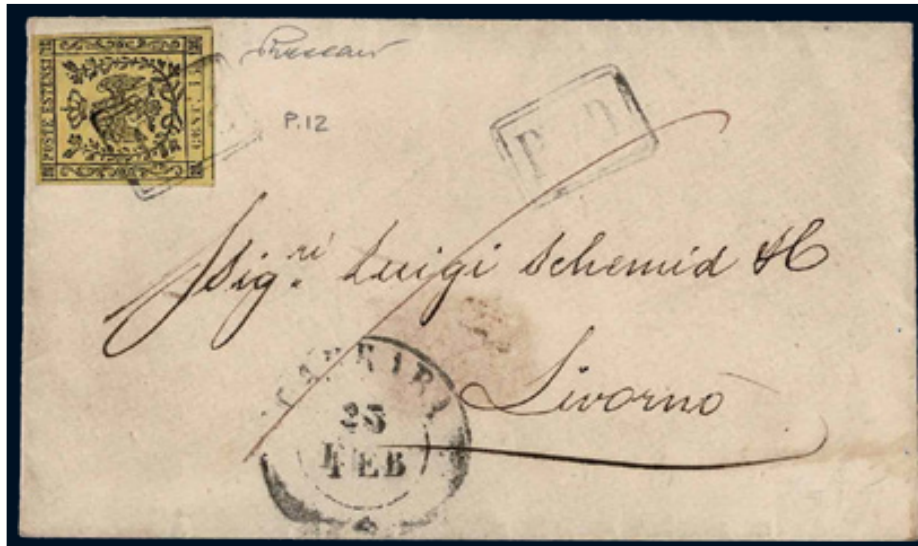 POSTE ESTENSI
CENT. 15
P.12
P.D
Sig.ri Luigi Schemid & C
Livorno
CARRARA
25
FEB